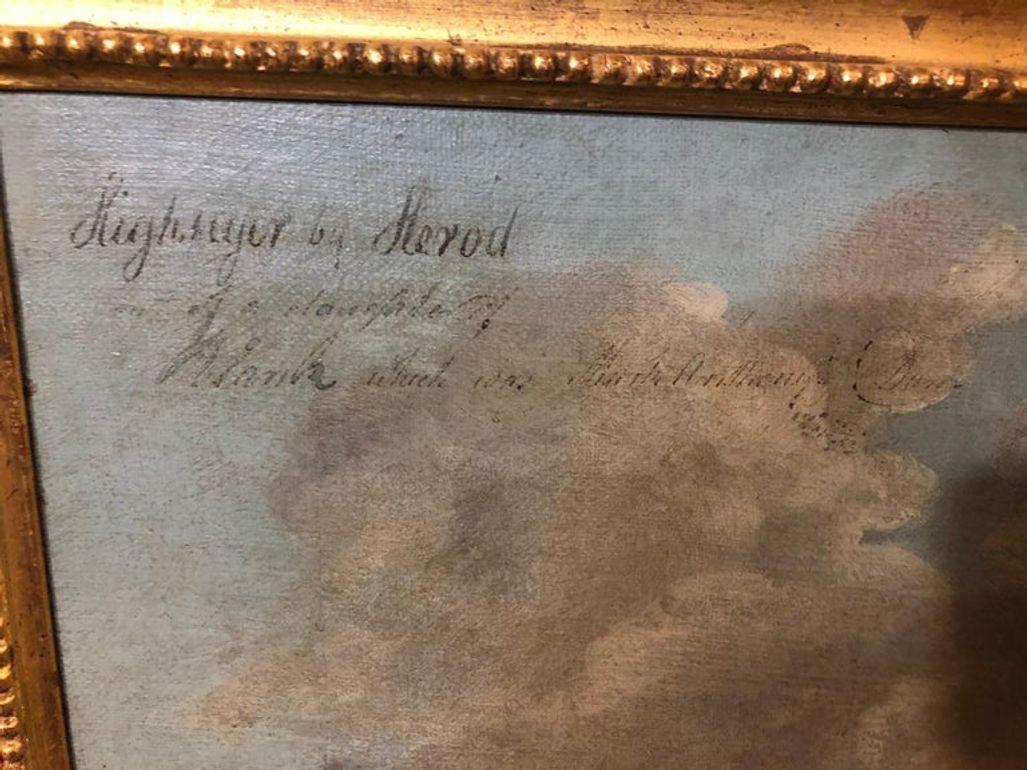 Highflyer by Herod
out of a daughter of
Blank which was Mark Anthony's Dam